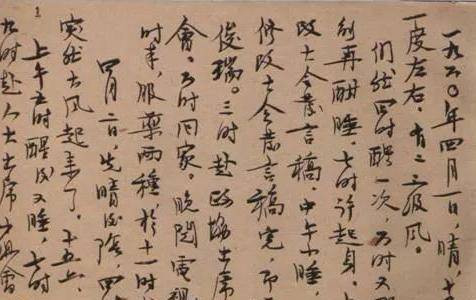 1
一九六〇年四月一日,晴,十
一度左右,有二三级风。
仍然四时醒一次,五时又
刻再酣睡,七时许起身。
改士今发言稿。中午小睡
修改士今发言稿完,即
俊瑞。三时赴政协出席
会。六时回家。晚阅电视
时半,服药两种,于十一时
四月二日,先晴后阴,四
突然大风起来了。
上午五时醒后又睡,七时
九时赴人大出席小组会